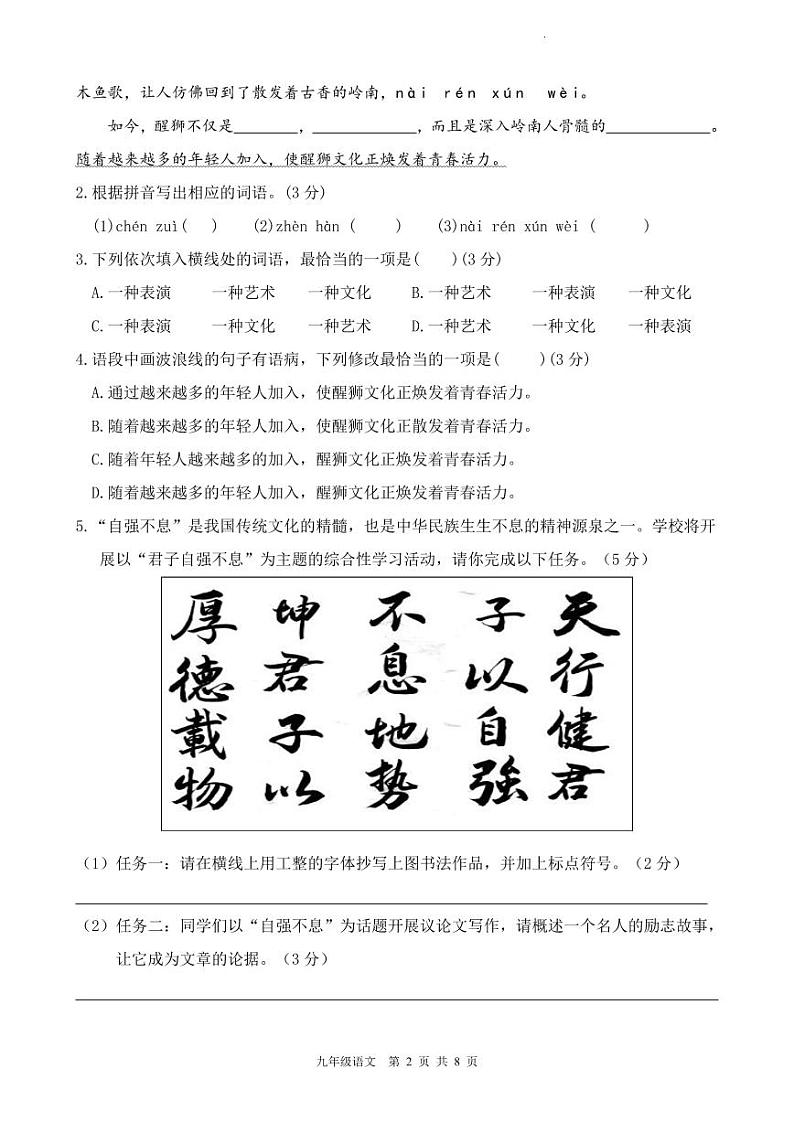 木鱼歌，让人仿佛回到了散发着古香的岭南，nài rén xún wèi。
如今，醒狮不仅是________，____________，而且是深入岭南人骨髓的____________。
随着越来越多的年轻人加入，使醒狮文化正焕发着青春活力。
2.根据拼音写出相应的词语。(3 分)
(1)chén zuì( ) (2)zhèn hàn ( ) (3)nài rén xún wèi ( )
3.下列依次填入横线处的词语，最恰当的一项是( )(3 分)
A.一种表演 一种艺术 一种文化 B.一种艺术 一种表演 一种文化
C.一种表演 一种文化 一种艺术 D.一种艺术 一种文化 一种表演
4.语段中画波浪线的句子有语病，下列修改最恰当的一项是( )(3 分)
A.通过越来越多的年轻人加入，使醒狮文化正焕发着青春活力。
B.随着越来越多的年轻人加入，使醒狮文化正散发着青春活力。
C.随着年轻人越来越多的加入，醒狮文化正焕发着青春活力。
D.随着越来越多的年轻人加入，醒狮文化正焕发着青春活力。
5.“自强不息”是我国传统文化的精髓，也是中华民族生生不息的精神源泉之一。学校将开
展以“君子自强不息”为主题的综合性学习活动，请你完成以下任务。（5 分）
天行健君
子以自強
不息地势
坤君子以
厚德載物
（1）任务一：请在横线上用工整的字体抄写上图书法作品，并加上标点符号。（2 分）
（2）任务二：同学们以“自强不息”为话题开展议论文写作，请概述一个名人的励志故事，
让它成为文章的论据。（3 分）
九年级语文 第 2 页 共 8 页